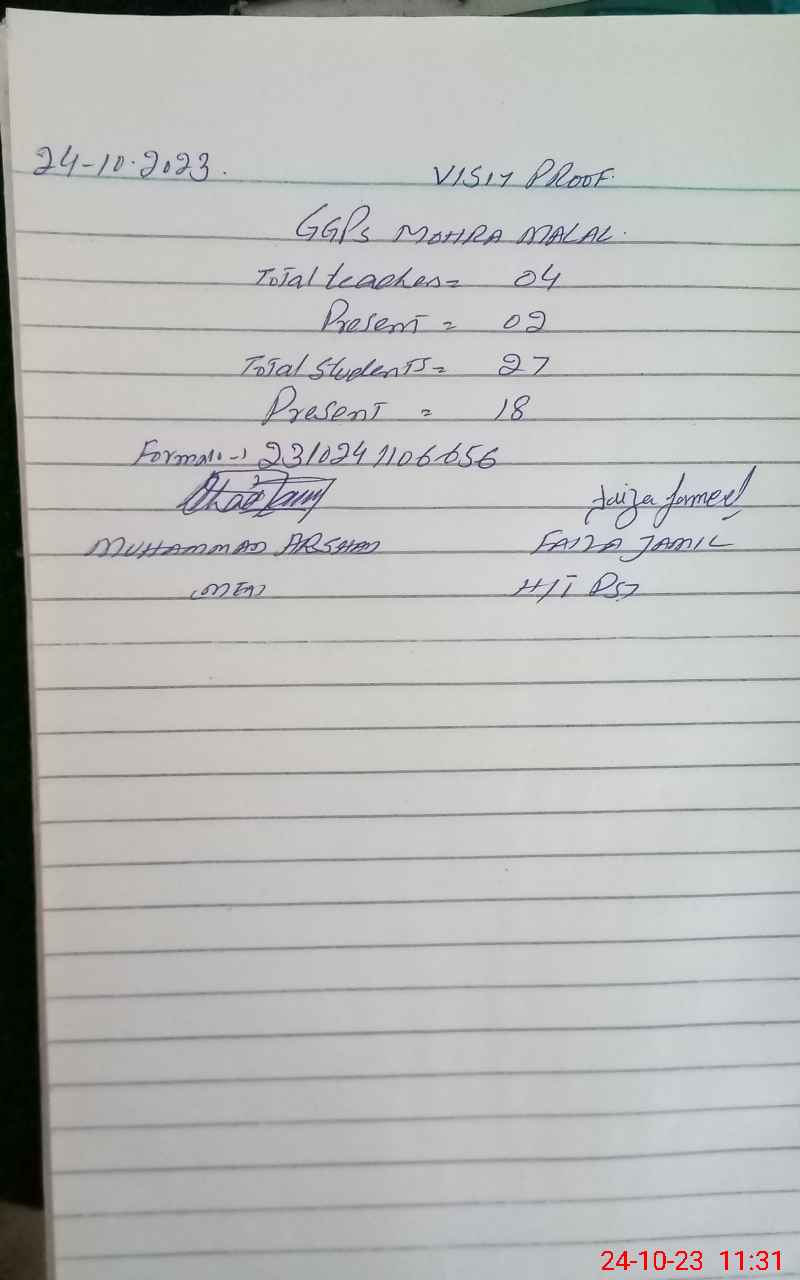 24-10-2023. VISIT PROOF.
GGPS MOHRA MALAL.
Total teacher = 04
Present = 02
Total Students = 27
Present = 18
2310241106656
Faiza Jameel
MUHAMMAD ARSHAD FAIZA JAMIL
(MEA) H/T PST
24-10-23 11:31